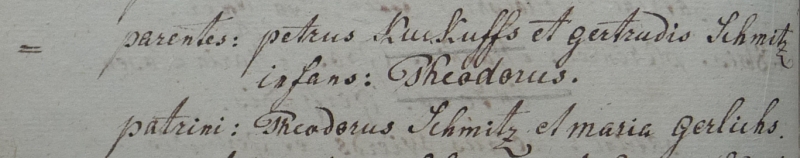 = parentes: petrus KucKuffs et gertrudis Schmitz
infans: Theodorus.
patrini: Theodorus Schmitz et maria gerlichs.